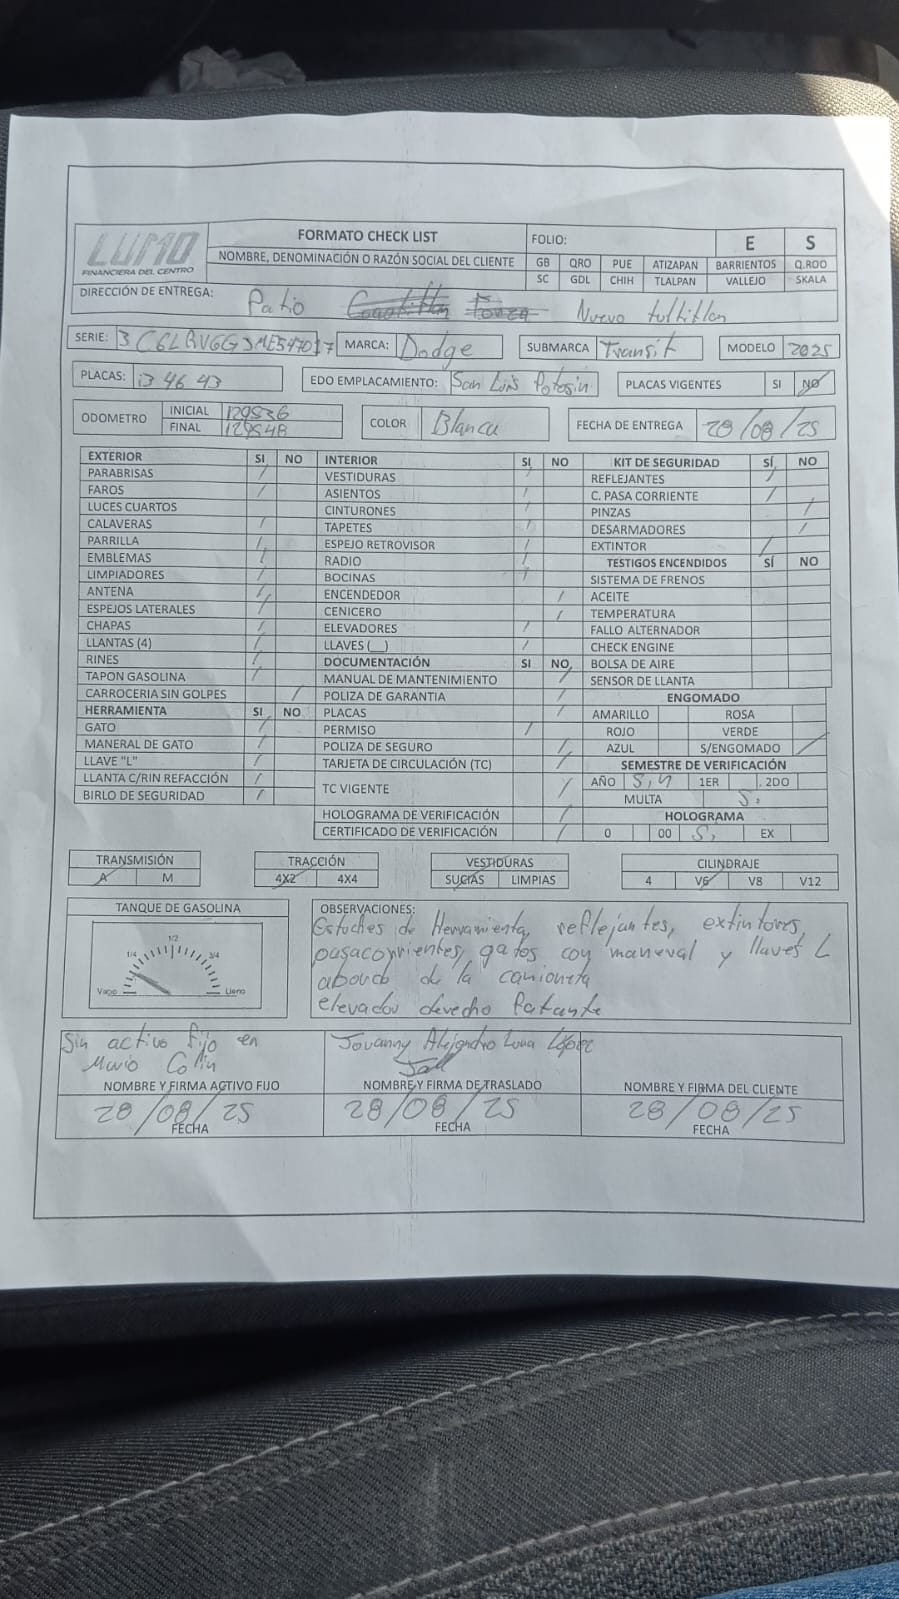 LUMO
FINANCIERA DEL CENTRO
FORMATO CHECK LIST
NOMBRE, DENOMINACIÓN O RAZÓN SOCIAL DEL CLIENTE
FOLIO: E S
GB QRO PUE ATIZAPAN BARRIENTOS Q.ROO
SC GDL CHIH TLALPAN VALLEJO SKALA
DIRECCIÓN DE ENTREGA: Patio Nuevo tultitlan
SERIE: MARCA: Dodge SUBMARCA Transit MODELO 2025
PLACAS: EDO EMPLACAMIENTO: San Luis Potosin PLACAS VIGENTES SI NO
ODOMETRO INICIAL 129536
FINAL 129548
COLOR Blanca FECHA DE ENTREGA 28/08/25
EXTERIOR SI NO
PARABRISAS
FAROS
LUCES CUARTOS
CALAVERAS
PARRILLA
EMBLEMAS
LIMPIADORES
ANTENA
ESPEJOS LATERALES
CHAPAS
LLANTAS (4)
RINES
TAPON GASOLINA
CARROCERIA SIN GOLPES
HERRAMIENTA SI NO
GATO
MANERAL DE GATO
LLAVE "L"
LLANTA C/RIN REFACCIÓN
BIRLO DE SEGURIDAD
INTERIOR SI NO
VESTIDURAS
ASIENTOS
CINTURONES
TAPETES
ESPEJO RETROVISOR
RADIO
BOCINAS
ENCENDEDOR
CENICERO
ELEVADORES
LLAVES (__)
DOCUMENTACIÓN SI NO
MANUAL DE MANTENIMIENTO
POLIZA DE GARANTIA
PLACAS
PERMISO
POLIZA DE SEGURO
TARJETA DE CIRCULACIÓN (TC)
TC VIGENTE
HOLOGRAMA DE VERIFICACIÓN
CERTIFICADO DE VERIFICACIÓN
KIT DE SEGURIDAD SÍ NO
REFLEJANTES
C. PASA CORRIENTE
PINZAS
DESARMADORES
EXTINTOR
TESTIGOS ENCENDIDOS SÍ NO
SISTEMA DE FRENOS
ACEITE
TEMPERATURA
FALLO ALTERNADOR
CHECK ENGINE
BOLSA DE AIRE
SENSOR DE LLANTA
ENGOMADO
AMARILLO ROSA
ROJO VERDE
AZUL S/ENGOMADO
SEMESTRE DE VERIFICACIÓN
AÑO 1ER 2DO
MULTA
HOLOGRAMA
0 00 EX
TRANSMISIÓN
A M
TRACCIÓN
4X2 4X4
VESTIDURAS
SUCIAS LIMPIAS
CILINDRAJE
4 V6 V8 V12
TANQUE DE GASOLINA
1/2
1/4 3/4
Vacio Lleno
OBSERVACIONES:
Estuches de Herramienta, reflejantes, extintores,
pasacorrientes, gatos con maneral y llaves L
abordo de la camioneta
elevador derecho Fatante
Sin activo fijo en
Mario Colin
NOMBRE Y FIRMA ACTIVO FIJO
28/08/25
FECHA
Jovanny Alejandro Luna López
NOMBRE Y FIRMA DE TRASLADO
28/08/25
FECHA
NOMBRE Y FIRMA DEL CLIENTE
28/08/25
FECHA